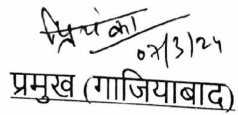 प्रियंका
07/3/24
प्रमुख (गाजियाबाद)